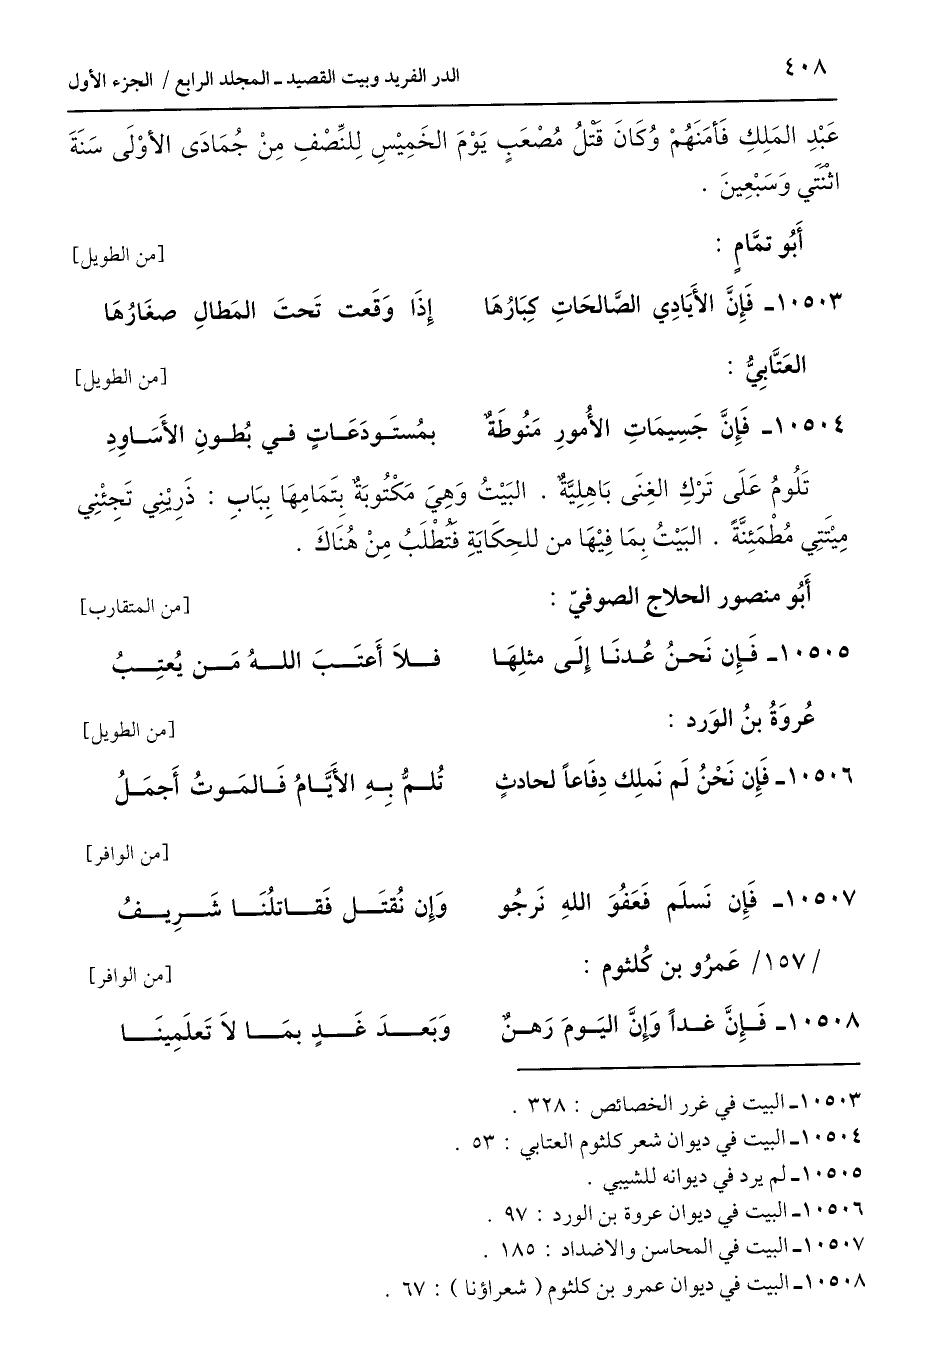 ٤٠٨ الدر الفريد وبيت القصيد ـ المجلد الرابع / الجزء الأول
عَبْدِ المَلِكِ فَأمَنَهُمْ وُكَانَ قَتْلُ مُصْعَبٍ يَوْمَ الخَمِيْسِ لِلنِّصْفِ مِنْ جُمَادَى الأوْلَى سَنَةَ
اثْنَتَي وَسَبْعِينَ .
أَبُو تمَّامٍ : [من الطويل]
١٠٥٠٣ـ فَإِنَّ الأَيَادِي الصَّالحَاتِ كِبَارُهَا إِذَا وَقَعت تَحتَ المَطالِ صغَارُهَا
العَتَّابِيُّ : [من الطويل]
١٠٥٠٤ـ فَإِنَّ جَسِيمَاتِ الأُمورِ مَنُوطَةٌ بمُستَودَعَاتٍ في بُطونِ الأَسَاوِدِ
تَلُومُ عَلَى تَرْكِ الغِنَى بَاهِلِيَّةٌ . البَيْتُ وَهِيَ مَكْتُوبَةٌ بِتَمَامِهَا بِبَابِ : ذَرِيْنِي تَجِئْنِي
مِيْتَتِي مُطْمَئِنَّةً . البَيْتُ بِمَا فِيْهَا من للحِكَايَةِ فَتُطْلَبُ مِنْ هُنَاكَ .
أَبُو منصور الحلاج الصوفيّ : [من المتقارب]
١٠٥٠٥ـ فَإِن نَحنُ عُدنَا إِلَى مثلِهَا فلاَ أَعتَبَ اللهُ مَن يُعتِبُ
عُروَةُ بنُ الوَرد : [من الطويل]
١٠٥٠٦ـ فَإِن نَحْنُ لَم نَملِك دِفَاعاً لحادثٍ تُلمُّ بِهِ الأَيَّامُ فَالمَوتُ أَجمَلُ
[من الوافر]
١٠٥٠٧ـ فَإِن نَسلَم فَعَفُوَ اللهِ نَرجُو وَإِن نُقتَل فَقَاتلُنَا شَرِيفُ
/١٥٧/ عَمرُو بن كُلثوم : [من الوافر]
١٠٥٠٨ـ فَإِنَّ غداً وَإِنَّ اليَومَ رَهنٌ وَبَعدَ غَدٍ بمَا لاَ تَعلَمِينَا
١٠٥٠٣ـ البيت في غرر الخصائص : ٣٢٨ .
١٠٥٠٤ـ البيت في ديوان شعر كلثوم العتابي : ٥٣ .
١٠٥٠٥ـ لم يرد في ديوانه للشيبي .
١٠٥٠٦ـ البيت في ديوان عروة بن الورد : ٩٧ .
١٠٥٠٧ـ البيت في المحاسن والاضداد : ١٨٥ .
١٠٥٠٨ـ البيت في ديوان عمرو بن كلثوم ( شعراؤنا ) : ٦٧ .